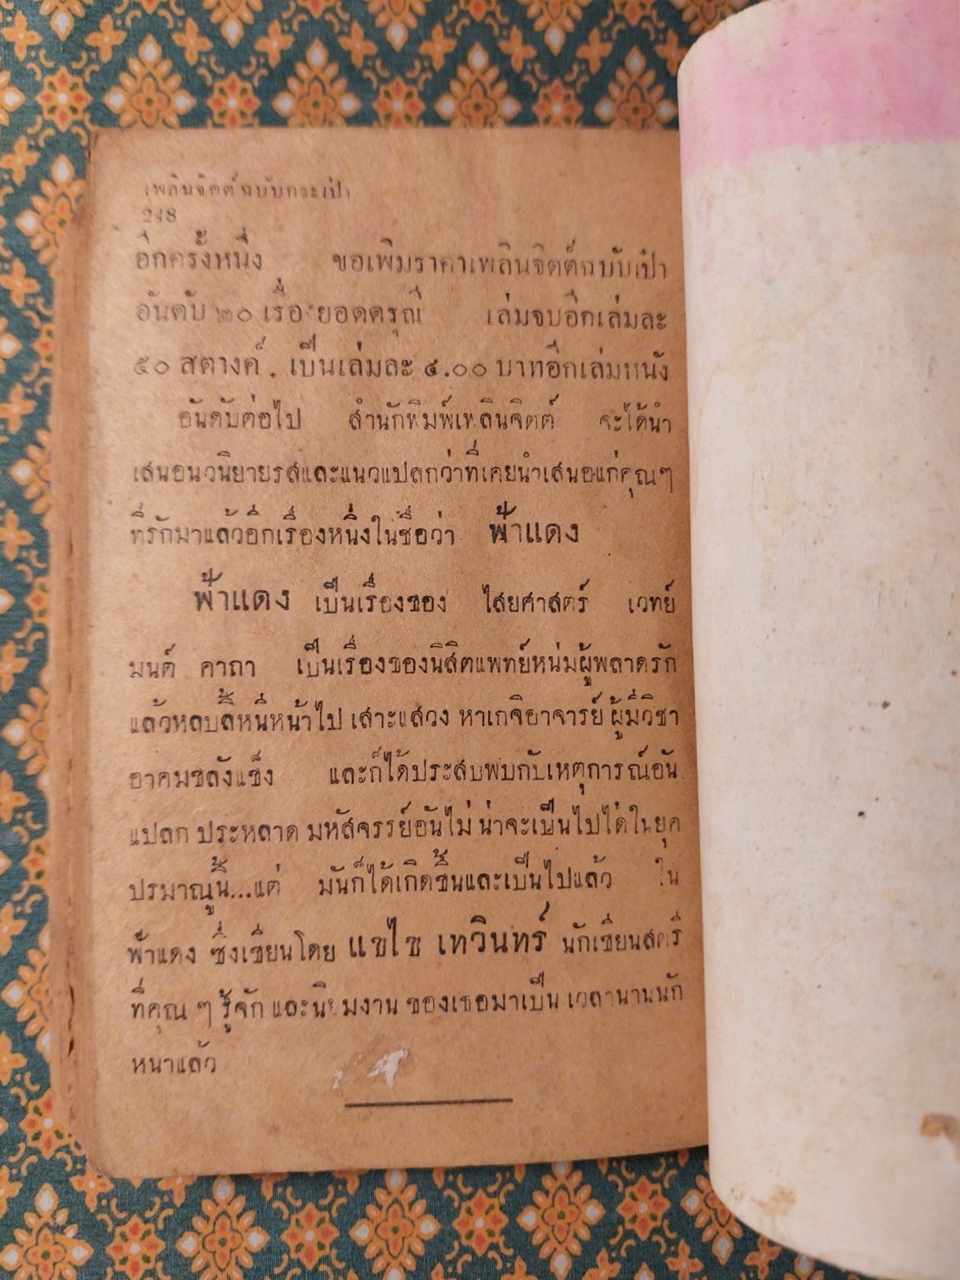 เพลินจิตต์ฉบับกระเป๋า
248
อีกครั้งหนึ่ง ขอเพิ่มราคาเพลินจิตต์ฉบับเป๋า
อันดับ ๒๐ เรื่อง ยอดดรุณี เล่มจบอีกเล่มละ
๕๐ สตางค์ . เป็นเล่มละ ๔.๐๐ บาทอีกเล่มหนัง
อันดับต่อไป สำนักพิมพ์เพลินจิตต์ จะได้นำ
เสนอนวนิยายรสและแนวแปลกว่าที่เคยนำเสนอแก่คุณๆ
ที่รักมาแล้วอีกเรื่องหนึ่งในชื่อว่า ฟ้าแดง
ฟ้าแดง เป็นเรื่องของ ไสยศาสตร์ เวทย์
มนต์ คาถา เป็นเรื่องของนิสิตแพทย์หนุ่มผู้พลาดรัก
แล้วหลบลี้หนีหน้าไป เสาะแสวง หาเกจิอาจารย์ ผู้มีวิชา
อาคมขลังแข็ง และก็ได้ประสบพบกับเหตุการณ์อัน
แปลก ประหลาด มหัสจรรย์อันไม่ น่าจะเป็นไปได้ในยุค
ปรมาณูนี้...แต่ มันก็ได้เกิดขึ้นและเป็นไปแล้ว ใน
ฟ้าแดง ซึ่งเขียนโดย แขไข เทวินทร์ นักเขียนสตรี
ที่คุณ ๆ รู้จัก และนิยมงาน ของเธอมาเป็น เวลานานนัก
หนาแล้ว